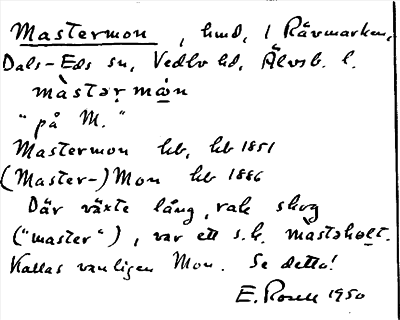 Mastermon, hmd, i Rävmarken,
Dals-Eds sn, Vedbo hd, Älvsb. l.
màstər mòn
"på M."
Mastermon hb, hb 1851
(Master-)Mon hb 1886
Där växte lång, rak skog
("master"), var ett s.k. màstəhołt.
Kallas vanligen Mon. Se detta!
E. Rosell 1950